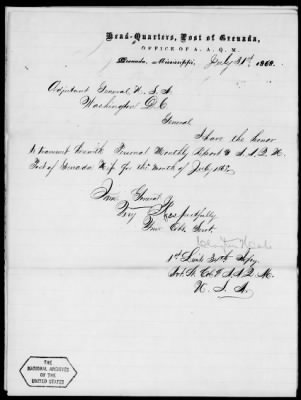 Head-Quarters, Post of Grenada,
OFFICE OF A. A. Q. M.
Grenada, Mississippi, July 31st 1868.
Adjutant General U. S. A.
Washington D. C.
General
I have the honor
to transmit herewith Personal Monthly Report of A. A. Q. M.
Post of Grenada for the month of July
I am General
Very Respectfully
Your Obt. Servt.
1st Lieut 34th Infy.
A. A. Q. M.
U. S. A.
THE
NATIONAL ARCHIVES
OF THE
UNITED STATES